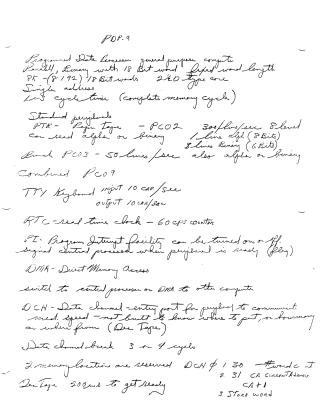 PDP-9
Programmed Data Processor general purpose computer
Parallel, Binary with 18 Bit word fixed word length
8K - (8192) 18 Bit words 2&D type core
Single address
1 us cycle time (complete memory cycle)
Standard peripherals
PTR - Paper Tape - PC02 300/line/sec 8 level
can read alpha or binary 1 line alph (8 Bits)
3 line Binary (6 Bits)
Punch PC03 - 50 lines/sec also alpha or binary
Combined PC09
TTY Keyboard input 10 car/sec
output 10 car/sec
RTC = real time clock - 60 cps counter
PI - Program Interrupt facility can be turned on or off
signal central processor when peripheral is ready (flag)
DMA - Direct Memory Access
switch to central processor or DMA to the computer
DCH - Data channel - entry port for periphery to communicate
med. speed - not built to know where to put, or how many
or where from (Dec Tape)
Data channel break 3 or 4 cycles
2 memory locations are reserved DCH 0 1. 30 word c it
2. 31 CA Current Address
CA+1
3 Store word
Dec Tape 200 ms to get ready